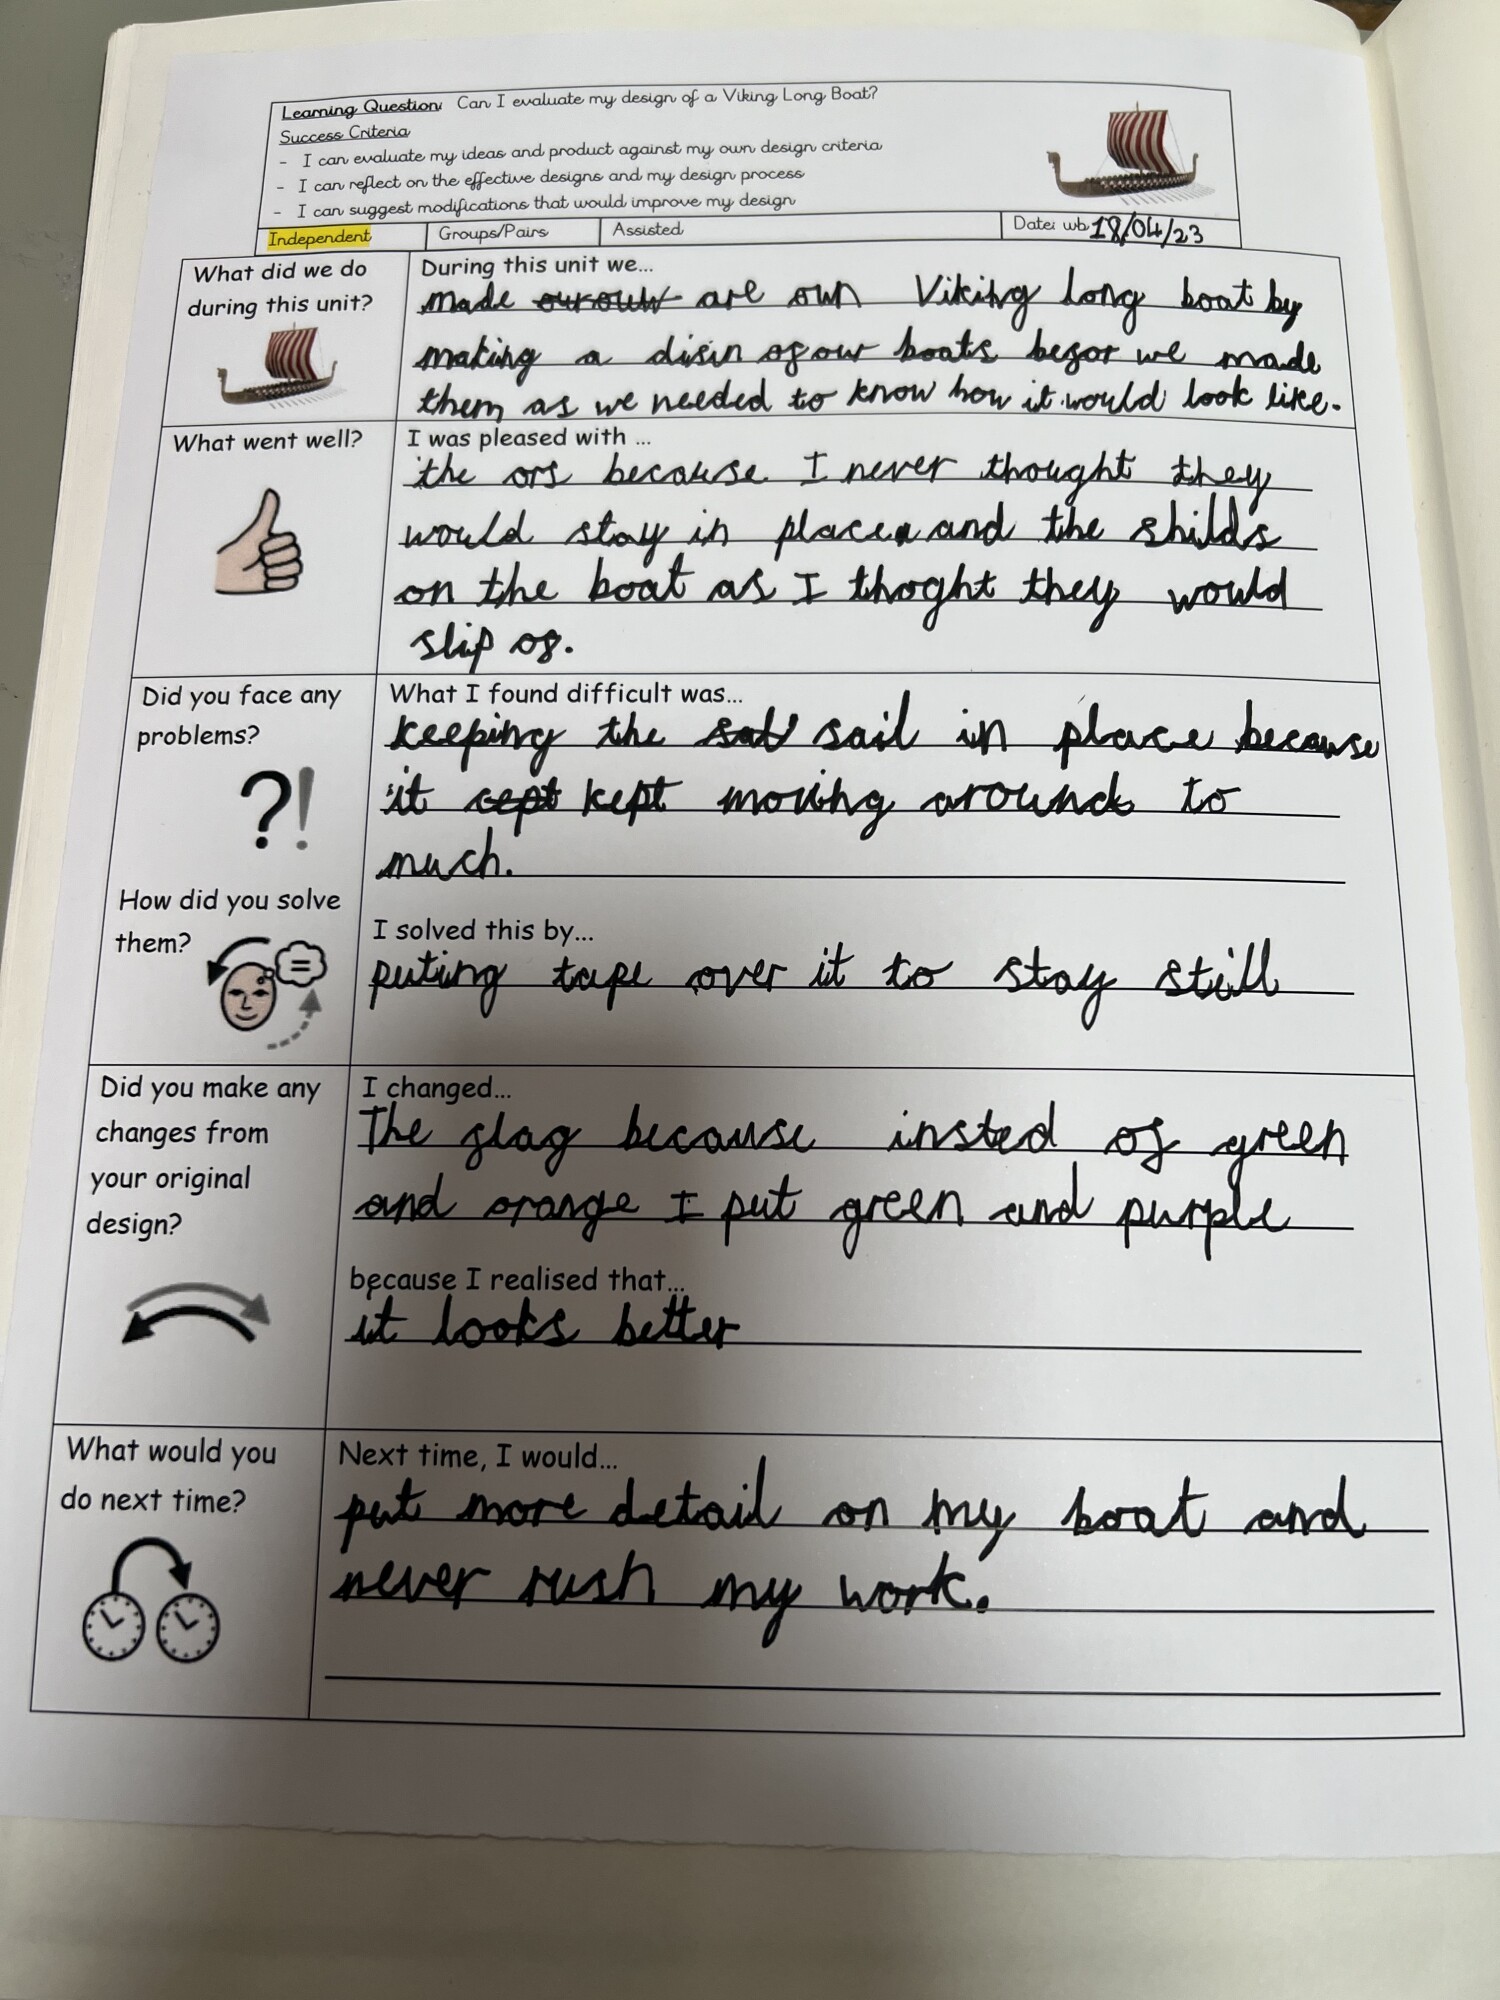 Learning Question: Can I evaluate my design of a Viking Long Boat?
Success Criteria
- I can evaluate my ideas and product against my own design criteria
- I can reflect on the effective designs and my design process
- I can suggest modifications that would improve my design
Independent Groups/Pairs Assisted Date: wb 18/04/23
What did we do
during this unit?
During this unit we...
made are own Viking long boat by
making a disin of our boats befor we made
them as we needed to know how it would look like.
What went well?
I was pleased with ...
the ors because I never thought they
would stay in place and the shilds
on the boat as I thoght they would
slip of.
Did you face any
problems?
What I found difficult was...
keeping the sail in place because
it cept kept moving around to
much.
How did you solve
them?
I solved this by...
puting tape over it to stay still
Did you make any
changes from
your original
design?
I changed...
The flag because insted of green
and orange I put green and purple
because I realised that...
it looks better
What would you
do next time?
Next time, I would...
put more detail on my boat and
never rush my work.